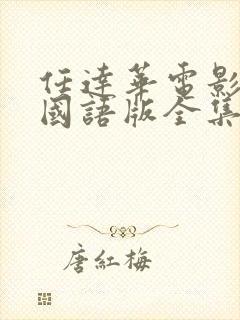 任達華電影
國語版全集
唐紅梅